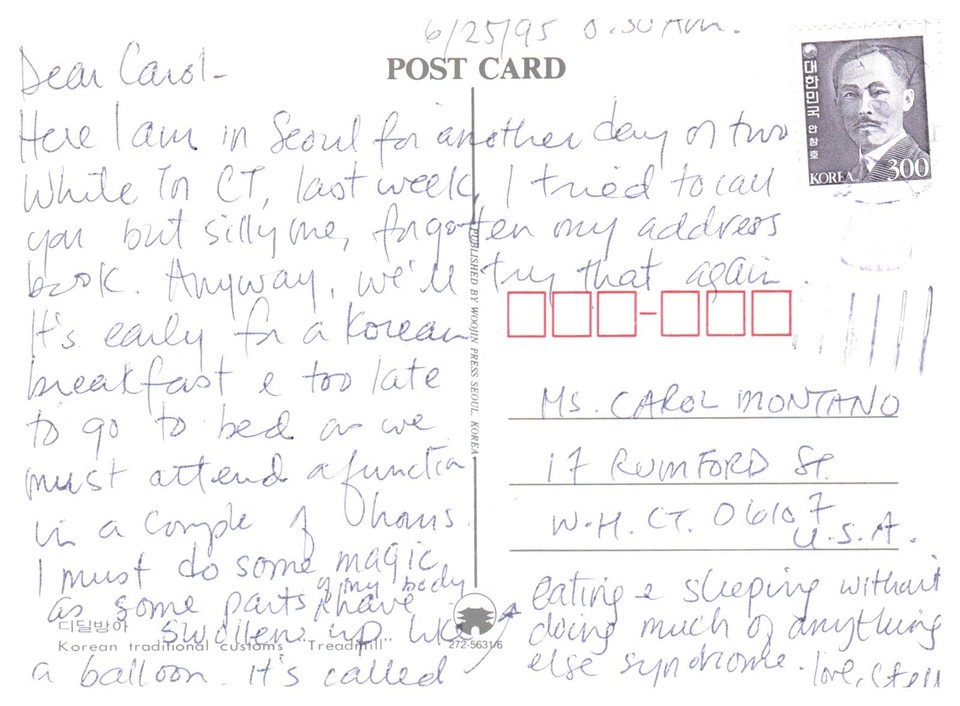 6/25/95
POST CARD
Dear Carol-
Here I am in Seoul for another day or two
While in CT, last week, I tried to call
you but silly me, forgotten my address
book. Anyway, we'll try that again.
It's early for a Korean
breakfast & too late
to go to bed as we
must attend a function
in a couple of hours.
I must do some magic
as some parts of my body have
swollen up like
a balloon. It's called
eating & sleeping without
doing much of anything
else syndrome. love,
대한민국 안창호
KOREA 300
PUBLISHED BY WOOJIN PRESS SEOUL. KOREA
MS. CAROL MONTANO
17 RUMFORD St.
W.H. CT. 06107
U.S.A.
디딜방아
Korean traditional customs "Treadmill"
272-5631/6